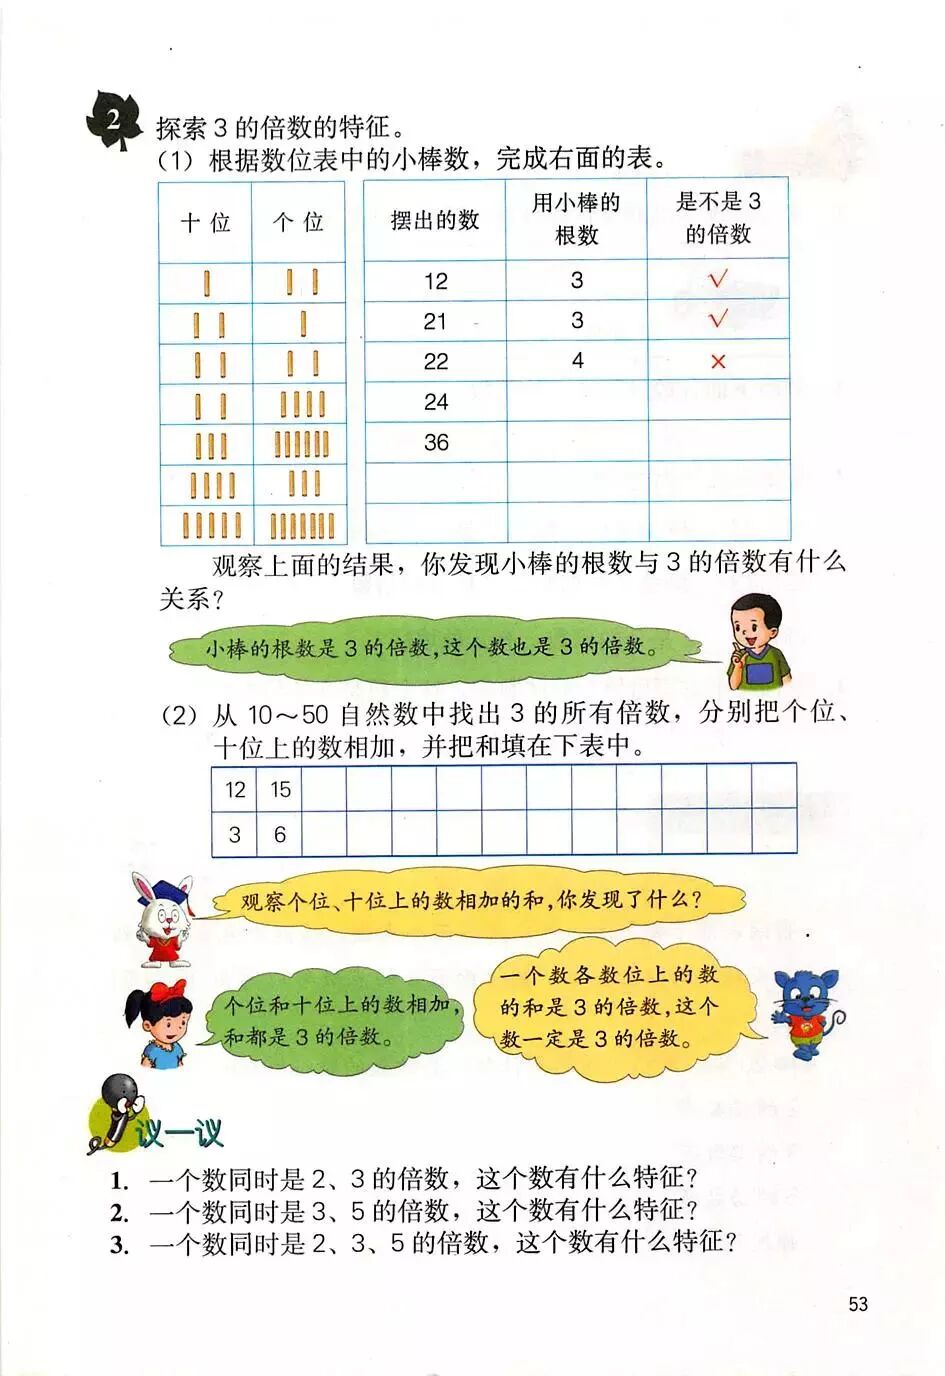 2
探索3的倍数的特征。
（1）根据数位表中的小棒数，完成右面的表。
十位 个位
摆出的数 用小棒的根数 是不是3的倍数
12 3 √
21 3 √
22 4 ×
24
36
观察上面的结果，你发现小棒的根数与3的倍数有什么
关系？
小棒的根数是3的倍数,这个数也是3的倍数。
（2）从10～50自然数中找出3的所有倍数，分别把个位、
十位上的数相加，并把和填在下表中。
12 15
3 6
观察个位、十位上的数相加的和,你发现了什么？
个位和十位上的数相加,
和都是3的倍数。
一个数各数位上的数
的和是3的倍数,这个
数一定是3的倍数。
议一议
1. 一个数同时是2、3的倍数，这个数有什么特征？
2. 一个数同时是3、5的倍数，这个数有什么特征？
3. 一个数同时是2、3、5的倍数，这个数有什么特征？
53